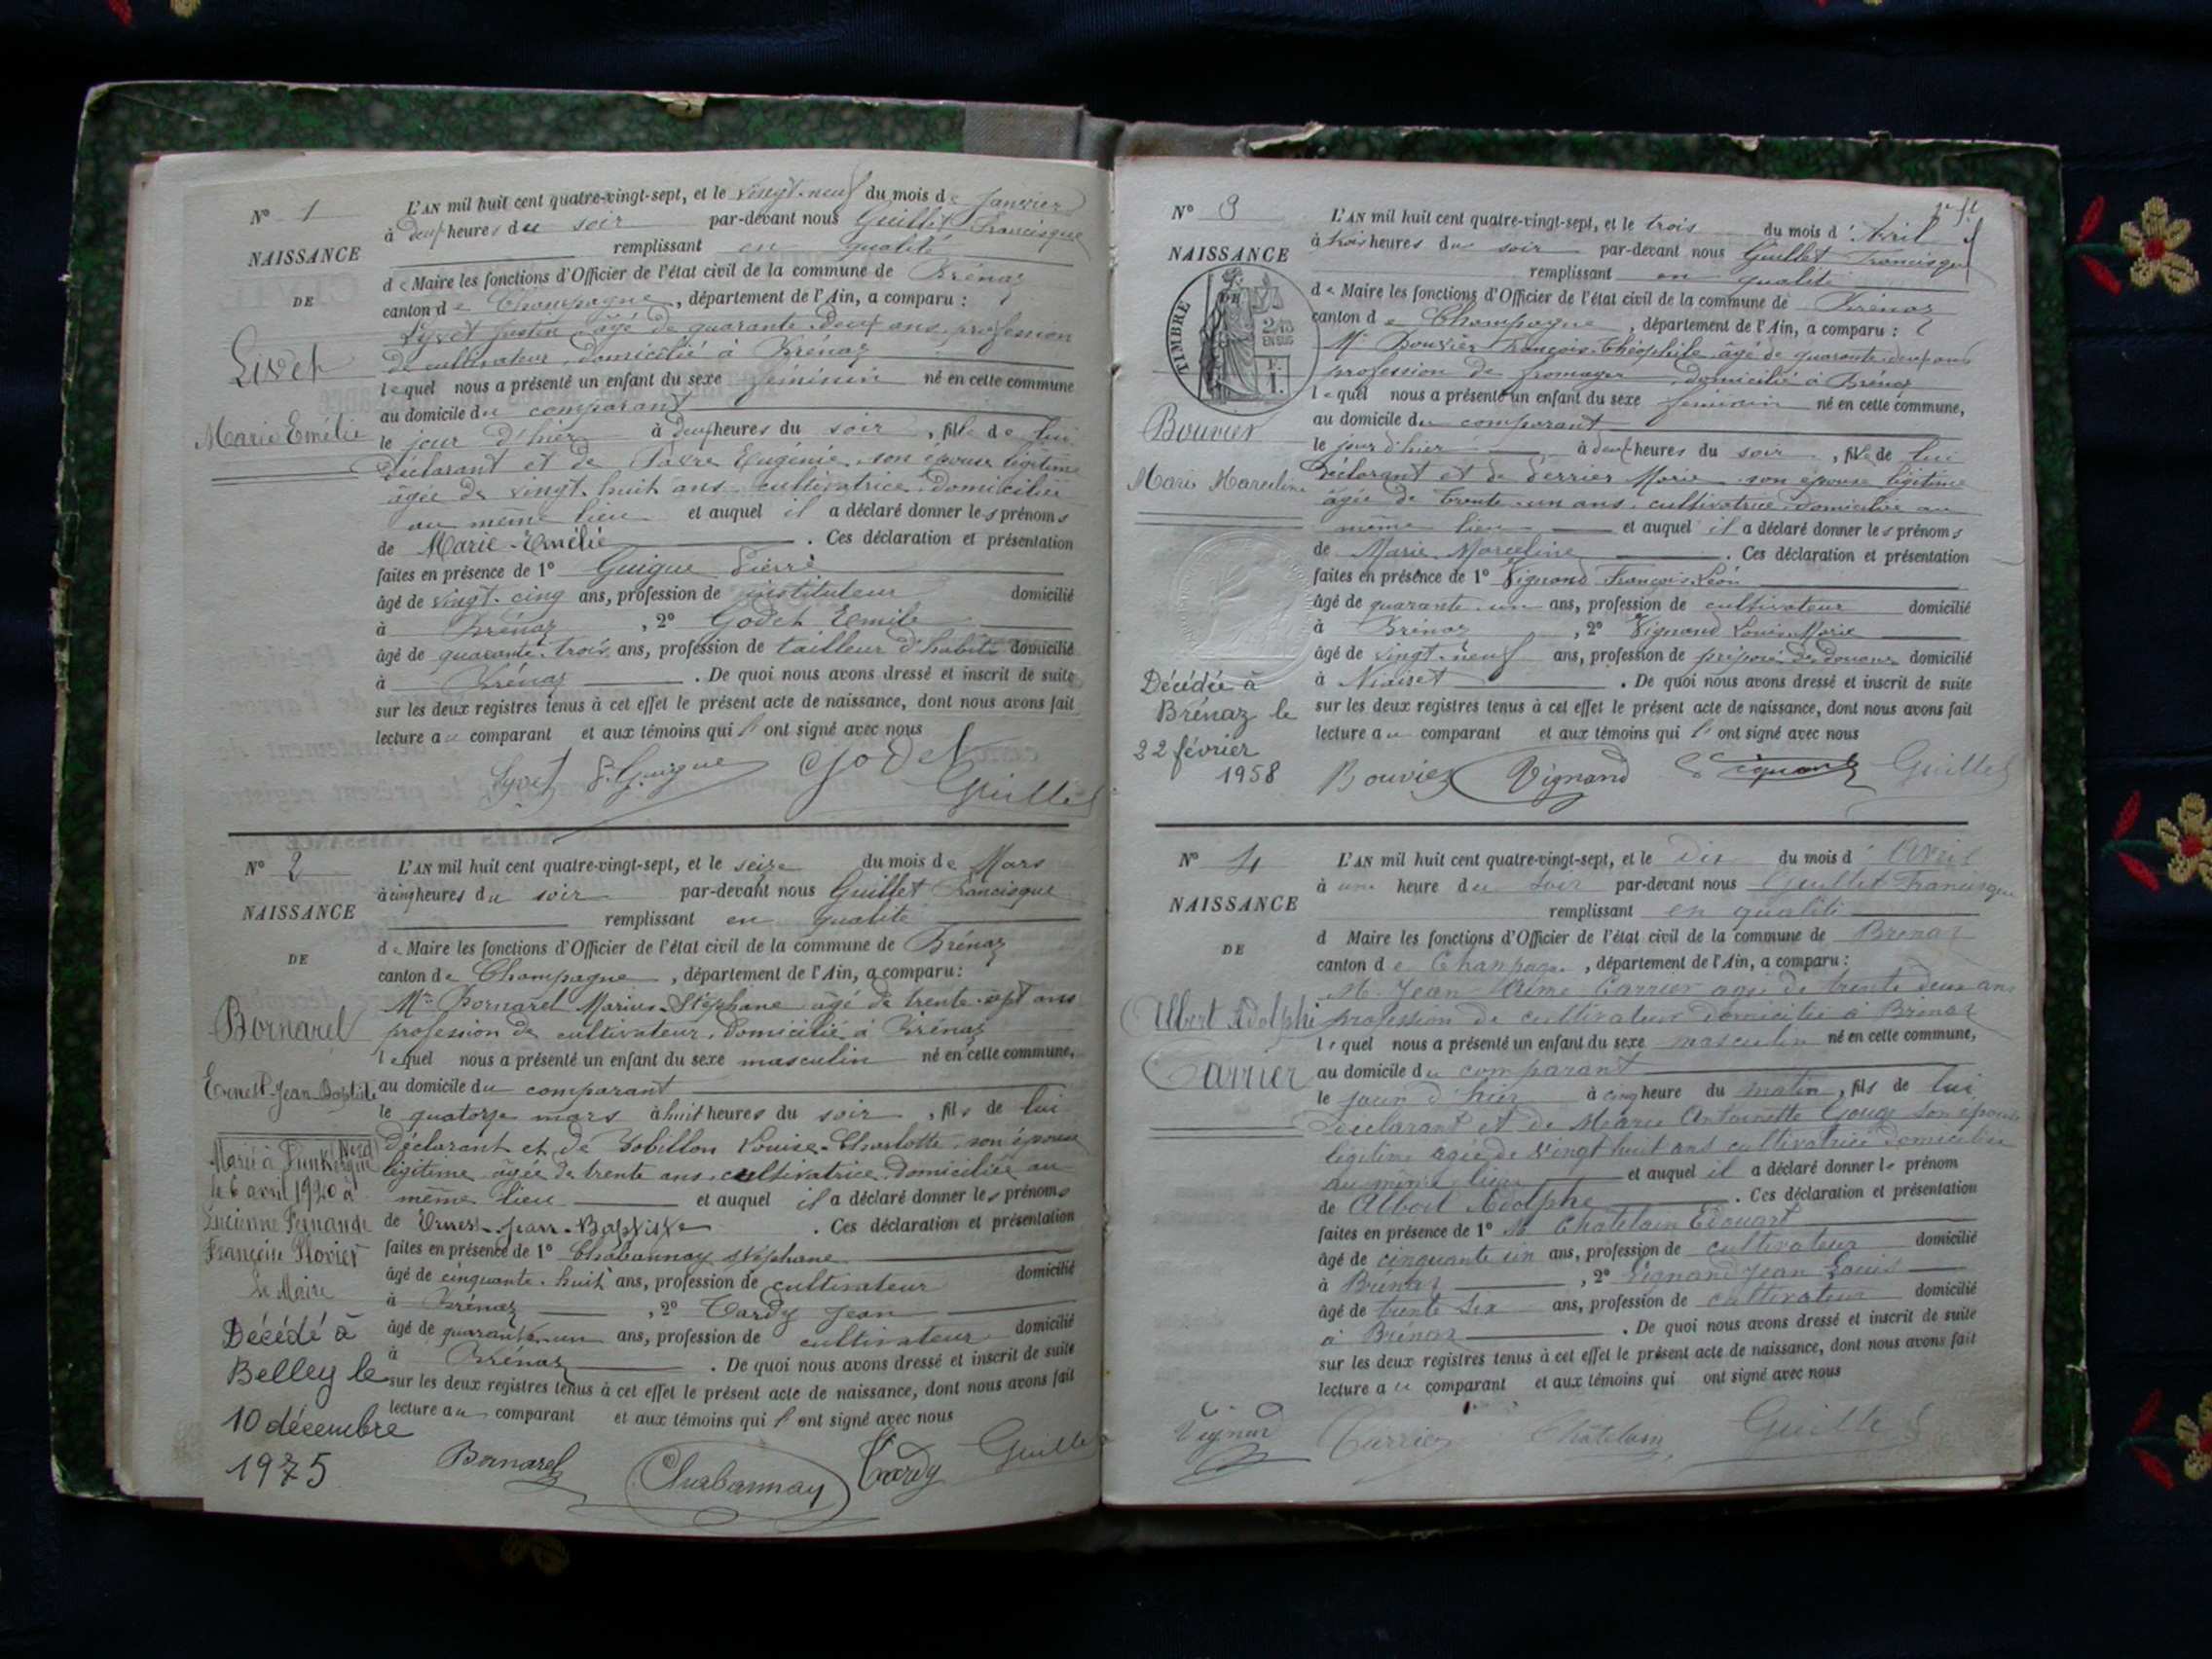 N° 1
NAISSANCE
DE
Livet
Marie Emélie
L'AN mil huit cent quatre-vingt-sept, et le vingt-neuf du mois de Janvier
à deux heures du soir par-devant nous Guillet Francisque
remplissant en qualité
de Maire les fonctions d'Officier de l'état civil de la commune de Brénaz
canton de Champagne, département de l'Ain, a comparu :
Lyvet Justin âgé de quarante-deux ans, profession
de cultivateur, domicilié à Brénaz
lequel nous a présenté un enfant du sexe féminin né en cette commune
au domicile du comparant
le jour d'hier à deux heures du soir, fille de lui
déclarant et de Favre Eugénie, son épouse légitime
âgée de vingt-huit ans, cultivatrice, domiciliée
au même lieu et auquel il a déclaré donner les prénoms
de Marie-Emélie. Ces déclaration et présentation
faites en présence de 1° Guigue Pierre
âgé de vingt-cinq ans, profession de instituteur domicilié
à Brénaz, 2° Godet Emile
âgé de quarante-trois ans, profession de tailleur d'habits domicilié
à Brénaz. De quoi nous avons dressé et inscrit de suite
sur les deux registres tenus à cet effet le présent acte de naissance, dont nous avons fait
lecture au comparant et aux témoins qui l'ont signé avec nous
Lyvet P. Guigue Godet
Guillet
N° 2
NAISSANCE
DE
Bornarel
Ernest-Jean-Baptiste
Marié à Dunkerque (Nord)
le 6 avril 1920 à
Lucienne Fernande
Françoise
Le Maire
Décédé à
Belley le
10 décembre
1975
L'AN mil huit cent quatre-vingt-sept, et le seize du mois de Mars
à cinq heures du soir par-devant nous Guillet Francisque
remplissant en qualité
de Maire les fonctions d'Officier de l'état civil de la commune de Brénaz
canton de Champagne, département de l'Ain, a comparu :
Mr Bornarel Marius-Stéphane âgé de trente-sept ans
profession de cultivateur, domicilié à Brénaz
lequel nous a présenté un enfant du sexe masculin né en cette commune,
au domicile du comparant
le quatorze mars à huit heures du soir, fils de lui
déclarant et de Bobillon Louise-Charlotte, son épouse
légitime âgée de trente ans, cultivatrice, domiciliée au
même lieu et auquel il a déclaré donner les prénoms
de Ernest-Jean-Baptiste. Ces déclaration et présentation
faites en présence de 1° Chabannay Stéphane
âgé de cinquante-huit ans, profession de cultivateur domicilié
à Brénaz, 2° Tardy Jean
âgé de quarante-un ans, profession de cultivateur domicilié
à Brénaz. De quoi nous avons dressé et inscrit de suite
sur les deux registres tenus à cet effet le présent acte de naissance, dont nous avons fait
lecture au comparant et aux témoins qui l'ont signé avec nous
Bornarel Chabannay Tardy Guillet
N° 3
NAISSANCE
TIMBRE
2/10
EN SUS
Bouvier
Marie Marceline
Décédée à
Brénaz le
22 février
1958
L'AN mil huit cent quatre-vingt-sept, et le trois du mois d'Avril
à trois heures du soir par-devant nous Guillet Francisque
remplissant en qualité
de Maire les fonctions d'Officier de l'état civil de la commune de Brénaz
canton de Champagne, département de l'Ain, a comparu :
Mr Bouvier François-Théophile âgé de quarante-deux ans
profession de fromager, domicilié à Brénaz
lequel nous a présenté un enfant du sexe féminin né en cette commune,
au domicile du comparant
le jour d'hier à deux heures du soir, fille de lui
déclarant et de Perrier Marie, son épouse légitime
âgée de trente-un ans, cultivatrice, domiciliée au
même lieu et auquel il a déclaré donner les prénoms
de Marie Marceline. Ces déclaration et présentation
faites en présence de 1° Vignand François Léon
âgé de quarante-un ans, profession de cultivateur domicilié
à Brénaz, 2° Vignand Louis-Marie
âgé de vingt-neuf ans, profession de préposé des douanes domicilié
à. De quoi nous avons dressé et inscrit de suite
sur les deux registres tenus à cet effet le présent acte de naissance, dont nous avons fait
lecture au comparant et aux témoins qui l'ont signé avec nous
Bouvier Vignand Vignand Guillet
N° 4
NAISSANCE
DE
Albert Adolphe
Carrier
L'AN mil huit cent quatre-vingt-sept, et le dix du mois d'Avril
à une heure du soir par-devant nous Guillet Francisque
remplissant en qualité
d Maire les fonctions d'Officier de l'état civil de la commune de Brénaz
canton de Champagne, département de l'Ain, a comparu :
M. Jean Aimé Carrier agé de trente deux ans
profession de cultivateur domicilié à Brénaz
lequel nous a présenté un enfant du sexe masculin né en cette commune,
au domicile du comparant
le jour d'hier à cinq heure du matin, fils de lui
déclarant et de Marie Antoinette Gouge son épouse
légitime agée de vingt huit ans cultivatrice domiciliée
au même lieu et auquel il a déclaré donner le prénom
de Albert Adolphe. Ces déclaration et présentation
faites en présence de 1° M. Chatelain Edouart
âgé de cinquante un ans, profession de cultivateur domicilié
à Brénaz, 2° Vignand Jean Louis
âgé de trente six ans, profession de cultivateur domicilié
à Brénaz. De quoi nous avons dressé et inscrit de suite
sur les deux registres tenus à cet effet le présent acte de naissance, dont nous avons fait
lecture au comparant et aux témoins qui ont signé avec nous
Vignand Carrier Châtelain Guillet